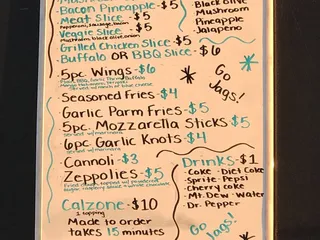 Bacon Pineapple - $5
Meat Slice - $5
Pepperoni, Sausage, Bacon
Veggie Slice - $5
Mushroom, black olive, onion
Grilled Chicken Slice - $5
Buffalo OR BBQ Slice - $6
Black Olive
Mushroom
Pineapple
Jalapeno
5pc Wings - $6
Served w/ranch or blue cheese
Go
Jags!
Seasoned Fries - $4
Garlic Parm Fries - $5
5pc Mozzarella Sticks $5
Served w/marinara
6pc Garlic Knots - $4
Served w/marinara
Cannoli - $3
Zeppolies - $5
Calzone - $10
1 topping
Made to order
takes 15 minutes
Drinks - $1
• Coke • Diet Coke
• Sprite • Pepsi
• Cherry coke
• Mt. Dew • Water
• Dr. Pepper
Go
Jags!